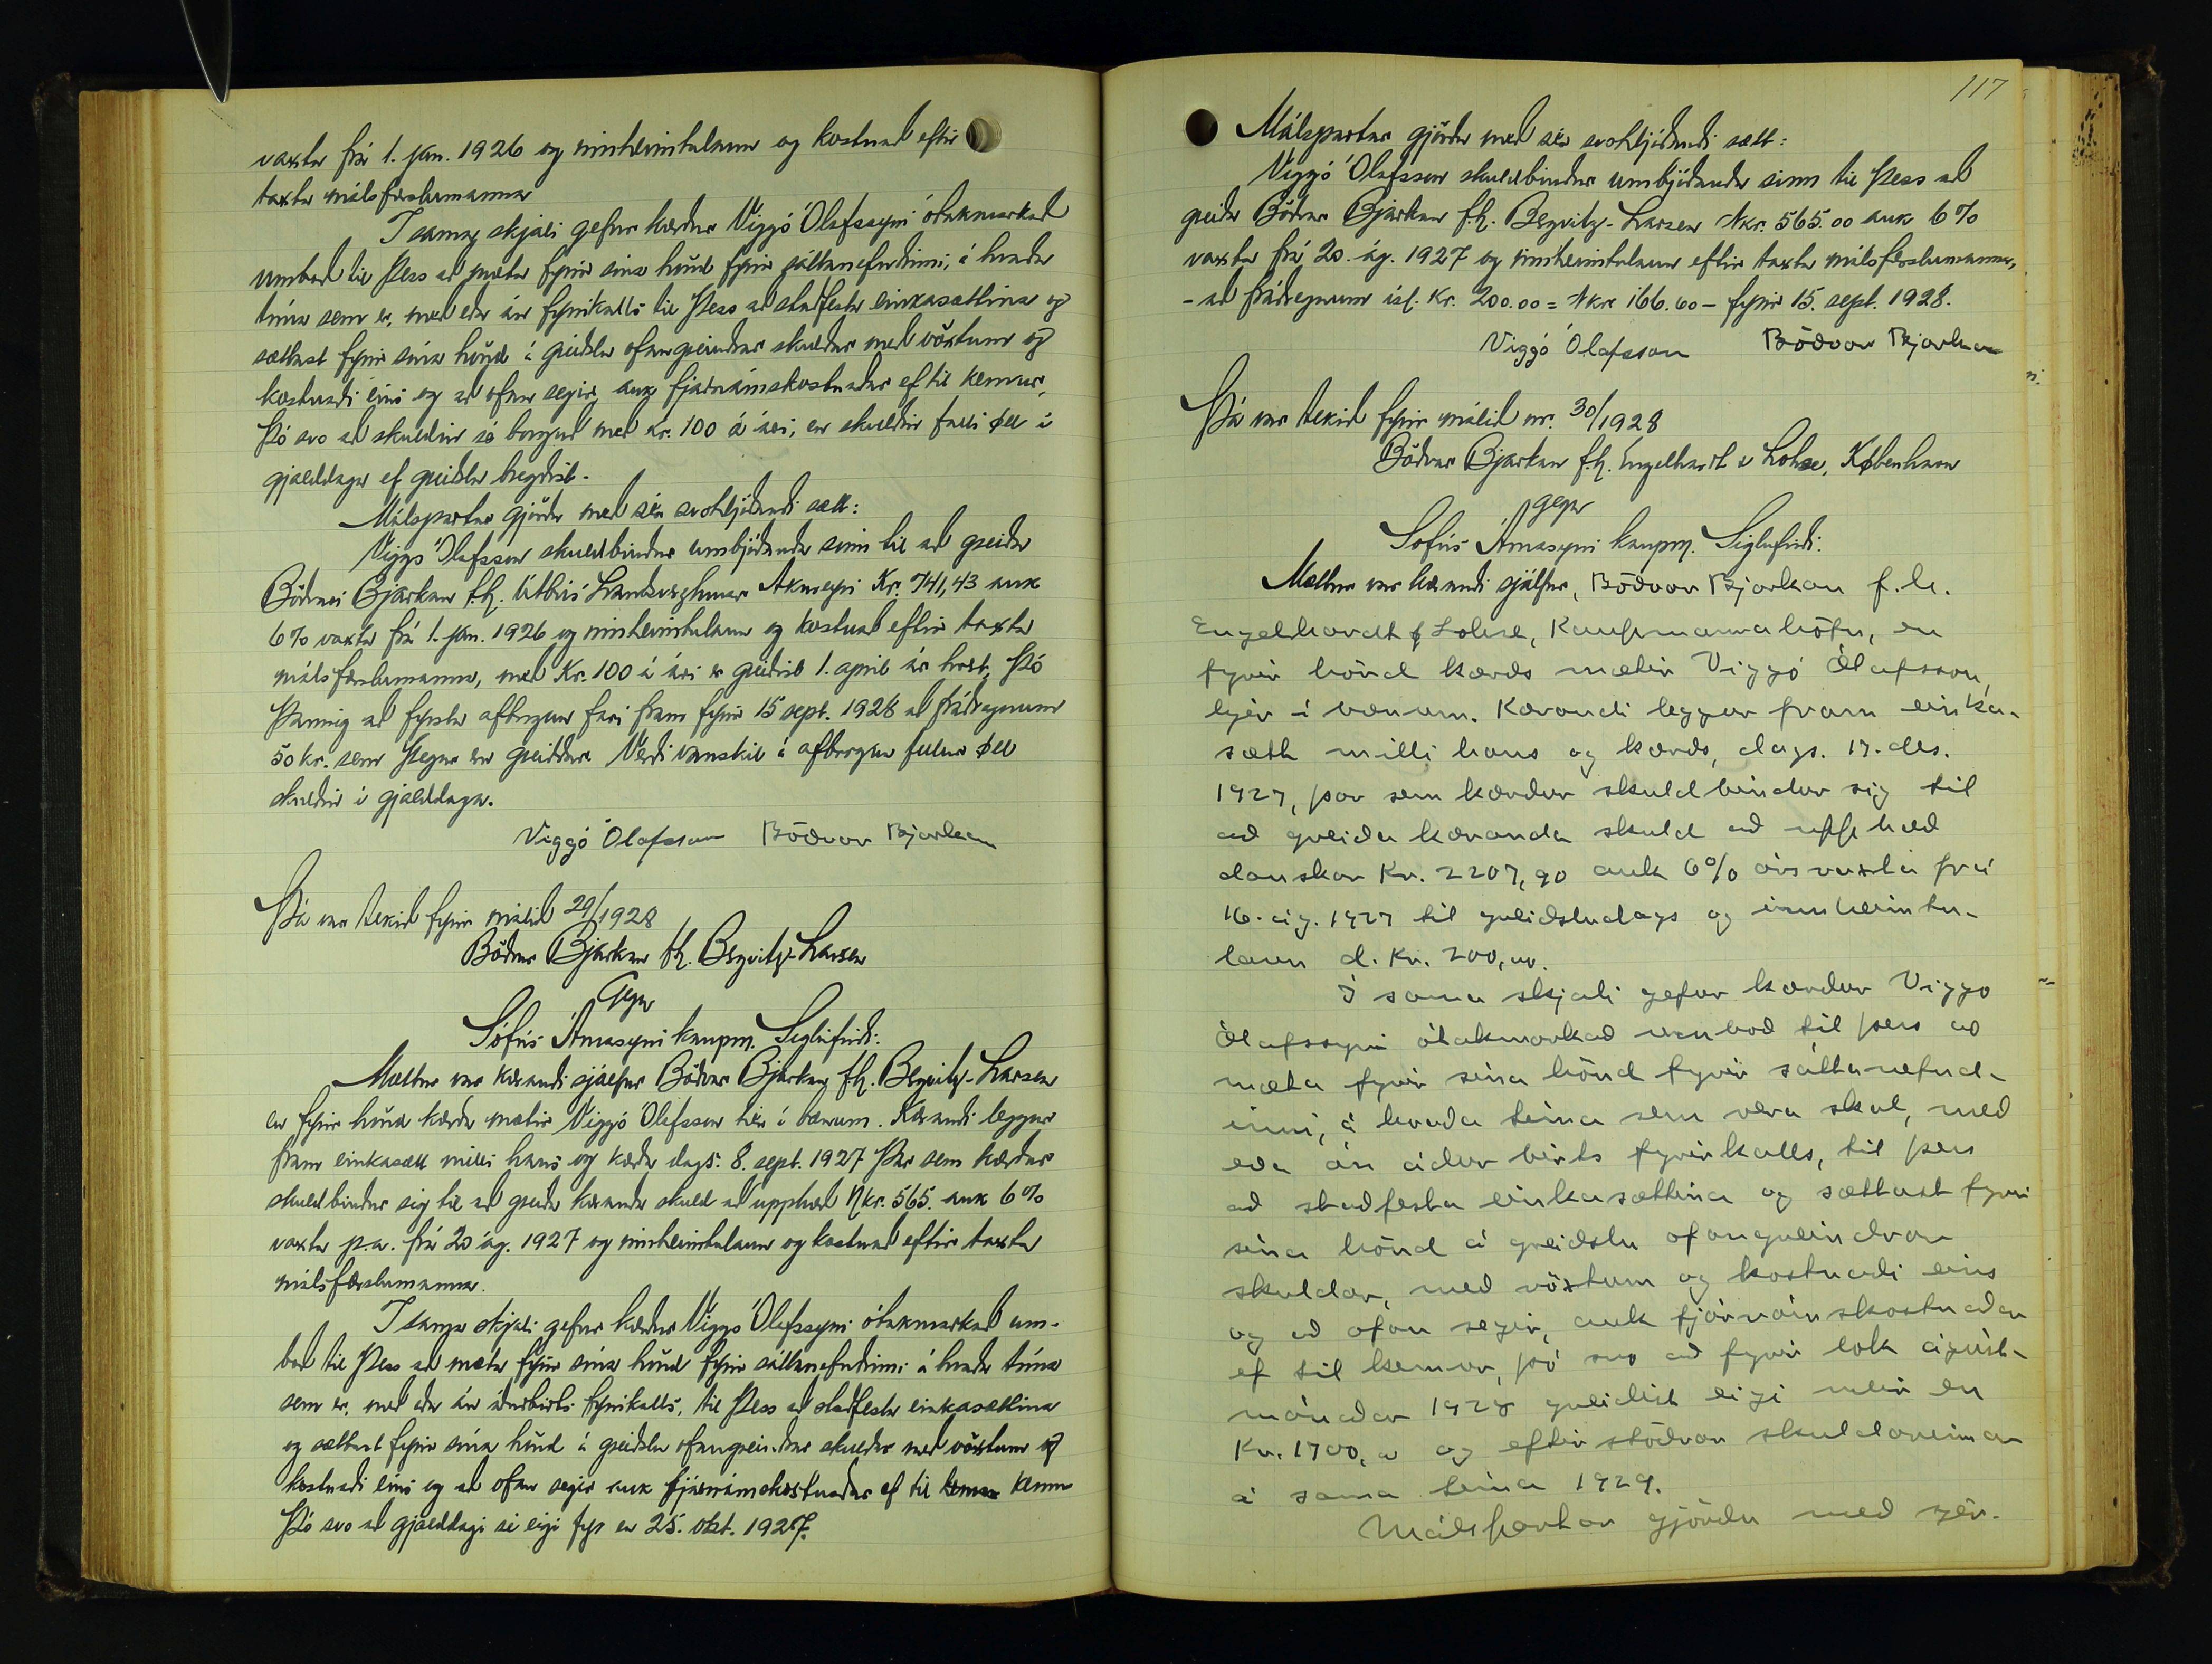 vaxta frá 1. jan. 1926 og innheimtulaun og kostnað eftir
taxta málsfærslumanna
Í sama skjali gefur kærður Viggó Ólafssyni ótakmarkað
umboð til þess að mæta fyrir sína hönd fyrir sáttanefndinni, á hvaða
tíma sem er, með eða án fyrirkalls til þess að staðfesta einkasættina og
sættast fyrir sína hönd á greiðslu ofangreindrar skuldar með vöxtum og
kostnaði eins og að ofan segir, auk fjárnámskostnaðar ef til kemur,
Þó svo að skuldin sé borguð með kr. 100 á ári, en skuldin falli öll í
gjalddaga ef greiðsla bregðist.
Málspartar gjörðu með sér svohljóðandi sætt:
Viggó Ólafsson skuldbindur umbjóðanda sinn til að greiða
Böðvari Bjarkan f.h. Útbús Landsverzlunar Akureyri Kr. 741,43 auk
6% vaxta frá 1. jan. 1926 og innheimtulaun og kostnað eftir taxta
málsfærslumanna, með Kr. 100 á ári er greiðist 1. apríl ár hvert, Þó
Þannig að fyrsta afborgun fari fram fyrir 15 sept. 1928 að frádregnum
50 kr. sem þegar eru greiddar. Verði vanskil á afborgun fellur öll
skuldin í gjalddaga.
Viggó Ólafsson Böðvar Bjarkan
Þá var tekið fyrir málið 29/1928
Böðvar Bjarkan f.h. Bergvitz-Larsen
Gegn
Sófús Árnasyni kaupm. Siglufirði.
Mættur var kærandi sjálfur Böðvar Bjarkan f.h. Bergvitz-Larsen
en fyrir hönd kærða mætir Viggó Ólafsson hér í bænum. Kærandi leggur
fram einkasætt milli hans og kærða dags. 8. sept. 1927 Þar sem kærður
skuldbindur sig til að greiða kæranda skuld að upphæð Nkr. 565. auk 6%
vaxta p.a. frá 20 ág. 1927 og innheimtulaun og kostnað eftir taxta
málsfærslumanna.
Í sama skjali gefur kærður Viggó Ólafssyni ótakmarkað um-
boð til Þess að mæta fyrir sína hönd fyrir sáttanefndinni á hvaða tíma
sem er, með eða án áðurbirts fyrirkalls, til Þess að staðfesta einkasættina
og sættast fyrir sína hönd á greiðslu ofangreindrar skuldar með vöxtum og
kostnaði eins og að ofan segir auk fjárnámskostnaðar ef til kemur
Þó svo að gjalddagi sé eigi fyr en 25. okt. 1927.
117
Málspartar gjörðu með sér svohljóðandi sætt:
Viggó Ólafsson skuldbindur umbjóðanda sinn til þess að
greiða Böðvar Bjarkan f.h. Bergvitz-Larsen Nkr. 565.00 auk 6%
vaxta frá 20. ág. 1927 og innheimtulaun eftir taxta málsfærslumanna,
- að frádregnum ísl. Kr. 200.00 = Nkr 166.60 - fyrir 15. sept. 1928.
Viggó Ólafsson Böðvar Bjarkan
Þá var tekið fyrir málið nr. 30/1928
Böðvar Bjarkan f.h. Engelhardt & Lohse, København
gegn
Sofús Árnasyni kaupm. Siglufirði.
Mættur var kærandi sjálfur, Böðvar Bjarkan f.h.
Engelhardt & Lohse, Kaupmannahöfn, en
fyrir hönd kærðs mætir Viggó Ólafsson,
hjer í bænum. Kærandi leggur fram einka-
sætt milli hans og kærðs, dags. 17. des.
1927, þar sem kærður skuldbindur sig til
að greiða kæranda skuld að upphæð
danskar Kr. 2207,90 auk 6% ársvaxta frá
16. ág. 1927 til greiðsludags og innheimtu-
laun d. Kr. 200,00.
Í sama skjali gefur kærður Viggo
Ólafssyni ótakmarkað umboð til þess að
mæta fyrir sína hönd fyrir sáttanefnd-
inni, á hvaða tíma sem vera skal, með
eða án áður birts fyrirkalls, til þess
að staðfesta einkasættina og sættast fyrir
sína hönd á greiðslu ofangreindrar
skuldar, með vöxtum og kostnaði eins
og að ofan segir, auk fjárnámskostnaðar
ef til kemur, þó svo að fyrir lok ágúst-
mánaðar 1928 greiðist eigi meir en
Kr. 1700,00 og eftirstöðvar skuldarinnar
á sama tíma 1929.
Málspartar gjörðu með sjer